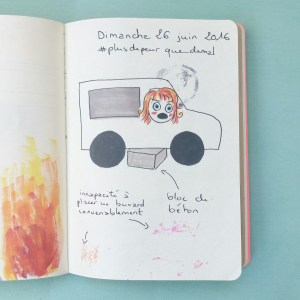 Dimanche 26 juin 2016
#plusdepeur que demal
incapacité à
placer un buvard
convenablement
bloc de
béton